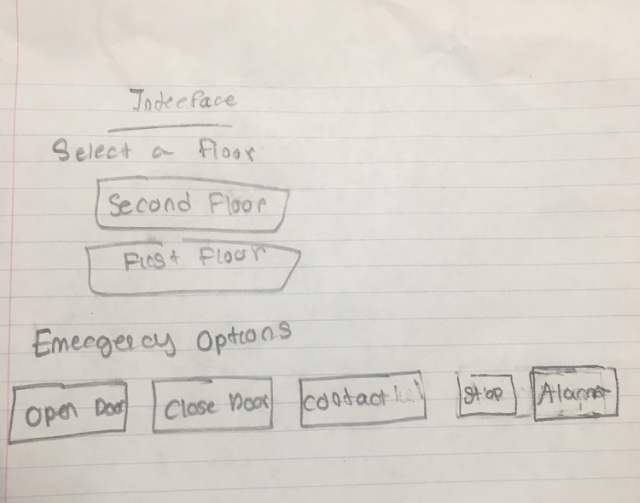 Interface
Select a Floor
Second Floor
First Floor
Emergency Options
Open Door Close Door Contact Stop Alarm